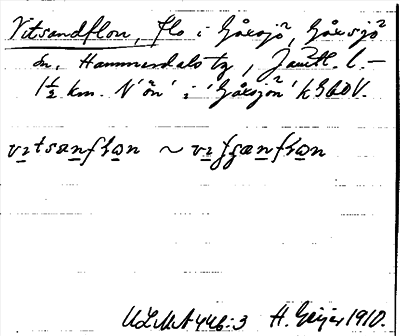 Vitsandflon, flo i Gåxsjö, Gåxsjö
sn, Hammerdals tg, Jämtl. l. —
1½ km. N 'ön' i 'Gåxsjön' k560V.
vɪtsanflωn ~ vɪʃʃænflωn
ULMA 446:3 H. Geijer 1910.